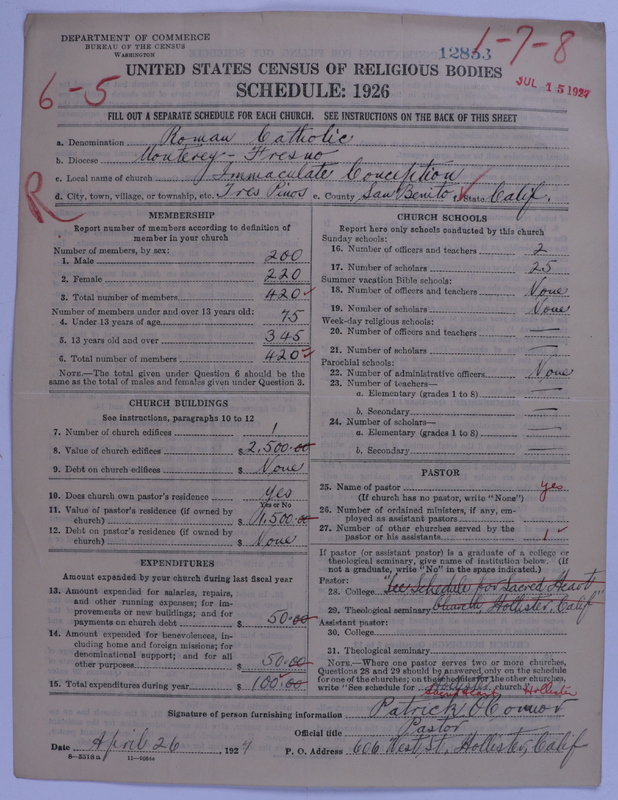 DEPARTMENT OF COMMERCE
BUREAU OF THE CENSUS
WASHINGTON
12833
1-7-8
JUL 15 1927
6-5
UNITED STATES CENSUS OF RELIGIOUS BODIES
SCHEDULE: 1926
FILL OUT A SEPARATE SCHEDULE FOR EACH CHURCH. SEE INSTRUCTIONS ON THE BACK OF THIS SHEET
a. Denomination Roman Catholic
b. Diocese Monterey-Fresno
c. Local name of church Immaculate Conception
R
d. City, town, village, or township, etc. Tres Pinos e. County San Benito f. State Calif.
MEMBERSHIP
Report number of members according to definition of
member in your church
Number of members, by sex:
1. Male 200
2. Female 220
3. Total number of members 420
Number of members under and over 13 years old:
4. Under 13 years of age 75
5. 13 years old and over 345
6. Total number of members 420
NOTE.—The total given under Question 6 should be
the same as the total of males and females given under Question 3.
CHURCH BUILDINGS
See instructions, paragraphs 10 to 12
7. Number of church edifices 1
8. Value of church edifices $2,500.00
9. Debt on church edifices $ None
10. Does church own pastor's residence yes
Yes or No
11. Value of pastor's residence (if owned by
church) $1,500.00
12. Debt on pastor's residence (if owned by
church) $ None
EXPENDITURES
Amount expended by your church during last fiscal year
13. Amount expended for salaries, repairs,
and other running expenses; for im-
provements or new buildings; and for
payments on church debt $ 50.00
14. Amount expended for benevolences, in-
cluding home and foreign missions; for
denominational support; and for all
other purposes $ 50.00
15. Total expenditures during year $ 100.00
CHURCH SCHOOLS
Report here only schools conducted by this church
Sunday schools:
16. Number of officers and teachers 2
17. Number of scholars 25
Summer vacation Bible schools:
18. Number of officers and teachers None
19. Number of scholars None
Week-day religious schools:
20. Number of officers and teachers —
21. Number of scholars —
Parochial schools:
22. Number of administrative officers None
23. Number of teachers—
a. Elementary (grades 1 to 8) —
b. Secondary —
24. Number of scholars—
a. Elementary (grades 1 to 8) —
b. Secondary —
PASTOR
25. Name of pastor yes
(If church has no pastor, write "None")
26. Number of ordained ministers, if any, em-
ployed as assistant pastors
27. Number of other churches served by the
pastor or his assistants 1
If pastor (or assistant pastor) is a graduate of a college or
theological seminary, give name of institution below. (If
not a graduate, write "No" in the space indicated.)
Pastor:
28. College "See Schedule for Sacred Heart
29. Theological seminary Church, Hollister, Calif"
Assistant pastor:
30. College
31. Theological seminary
NOTE.—Where one pastor serves two or more churches,
Questions 28 and 29 should be answered only on the schedule
for one of the churches; on the schedules for the other churches,
write "See schedule for Hollister church."
Sacred Heart Hollister
Signature of person furnishing information Patrick O'Connor
Official title Pastor
Date April 26, 1927 P. O. Address 606 West St, Hollister, Calif
8—5518a 11—